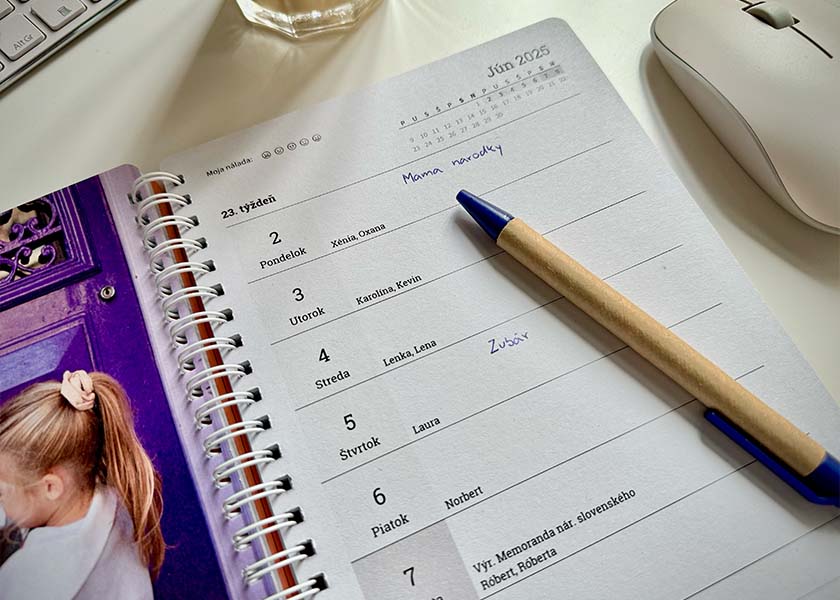 Alt Gr
Jún 2025
P U S Š P S N P U S Š P S N
1 2 3 4 5 6 7 8
9 10 11 12 13 14 15 16 17 18 19 20 21 22
23 24 25 26 27 28 29 30
Moja nálada:
23. týždeň
Mama narodky
2
Pondelok
Xénia, Oxana
3
Utorok
Karolína, Kevin
4
Streda
Lenka, Lena
Zubár
5
Štvrtok
Laura
6
Piatok
Norbert
7
Výr. Memoranda nár. slovenského
Róbert, Róberta